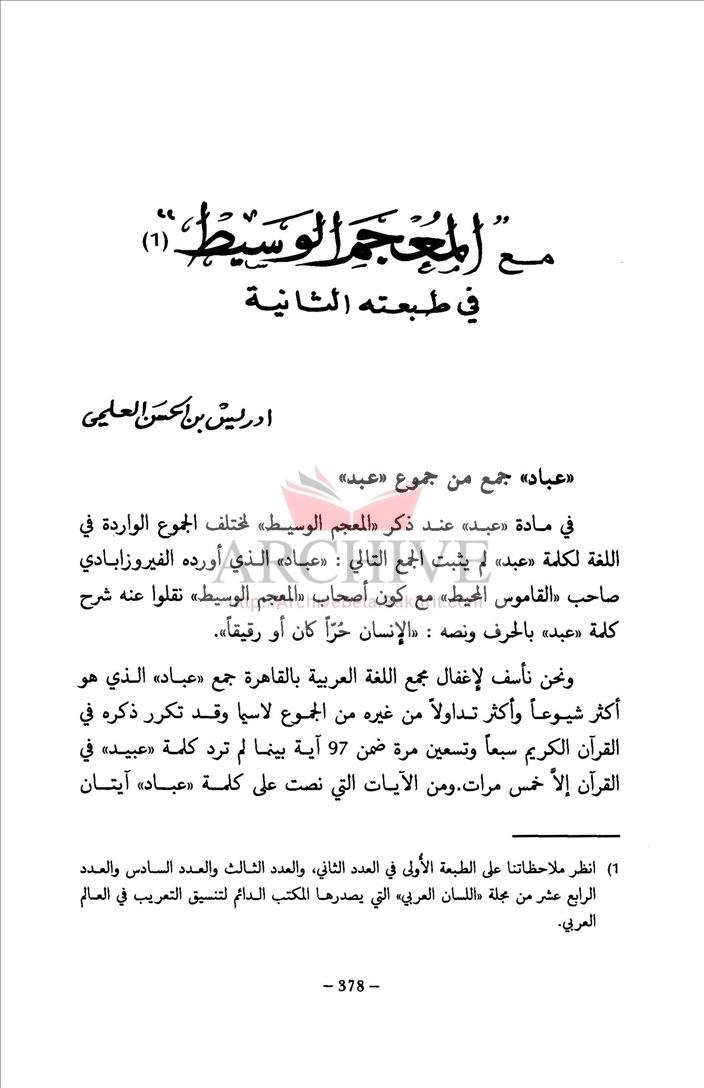 مع "المعجم الوسيط" (1)
في طبعته الثانية
ادريس بن الحسن العلمي
«عباد» جمع من جموع «عبد»
في مادة «عبد» عند ذكر «المعجم الوسيط» لمختلف الجموع الواردة في
اللغة لكلمة «عبد» لم يثبت الجمع التالي : «عباد» الذي أورده الفيروزابادي
صاحب «القاموس المحيط» مع كون أصحاب «المعجم الوسيط» نقلوا عنه شرح
كلمة «عبد» بالحرف ونصه : «الإنسان حُرّاً كان أو رقيقاً».
ونحن نأسف لإغفال مجمع اللغة العربية بالقاهرة جمع «عباد» الذي هو
أكثر شيوعاً وأكثر تداولاً من غيره من الجموع لاسيما وقد تكرر ذكره في
القرآن الكريم سبعاً وتسعين مرة ضمن 97 آية بينما لم ترد كلمة «عبيد» في
القرآن إلاَّ خمس مرات.ومن الآيات التي نصت على كلمة «عباد» آيتان
1) انظر ملاحظاتنا على الطبعة الأُولى في العدد الثاني، والعدد الثالث والعدد السادس والعدد
الرابع عشر من مجلة «اللسان العربي» التي يصدرها المكتب الدائم لتنسيق التعريب في العالم
العربي.
– 378 –
ARCHIVE